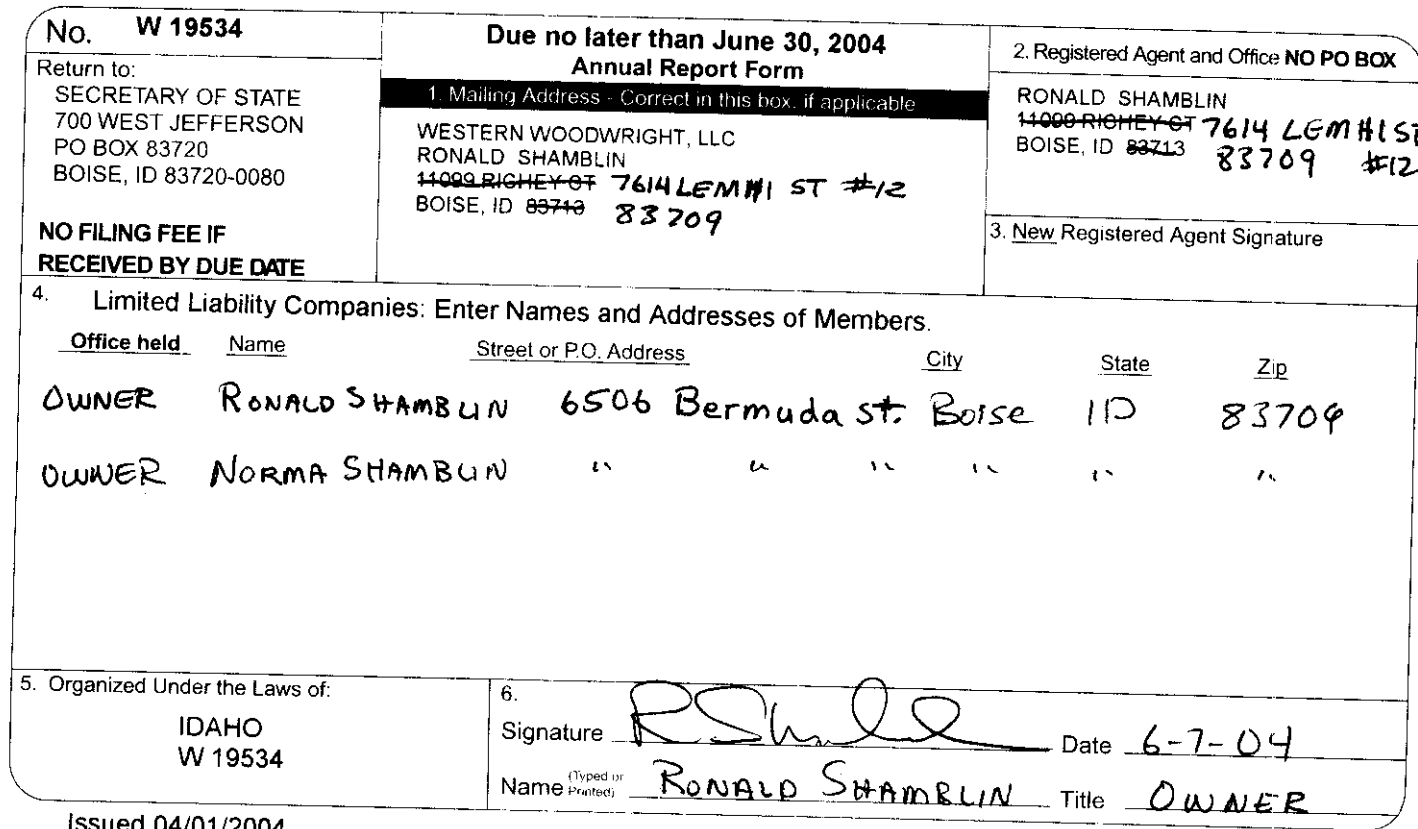 No. W 19534
Return to:
SECRETARY OF STATE
700 WEST JEFFERSON
PO BOX 83720
BOISE, ID 83720-0080
NO FILING FEE IF
RECEIVED BY DUE DATE
Due no later than June 30, 2004
Annual Report Form
1. Mailing Address - Correct in this box, if applicable
WESTERN WOODWRIGHT, LLC
RONALD SHAMBLIN
11099 RICHEY CT 7614 LEMHI ST #12
BOISE, ID 83713 83709
2. Registered Agent and Office NO PO BOX
RONALD SHAMBLIN
11099 RICHEY CT 7614 LEMHI ST
BOISE, ID 83713 83709 #12
3. New Registered Agent Signature
4. Limited Liability Companies: Enter Names and Addresses of Members.
Office held Name Street or P.O. Address City State Zip
OWNER RONALD SHAMBLIN 6506 Bermuda st. Boise ID 83709
OWNER NORMA SHAMBLIN " " " " " "
5. Organized Under the Laws of:
IDAHO
W 19534
6.
Signature RShamblin Date 6-7-04
Name (Typed or Printed) RONALD SHAMBLIN Title OWNER
Issued 04/01/2004